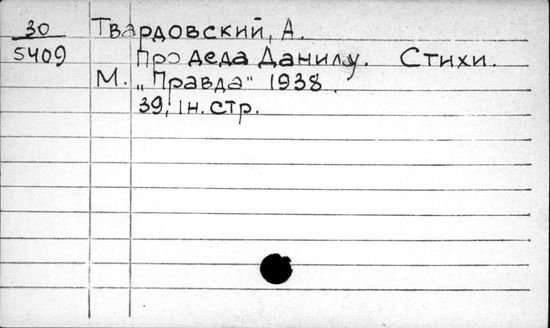 30 Твардовский, А.
5409 Про деда Данилу. Стихи.
М. „Правда" 1938.
39, 1н. стр.